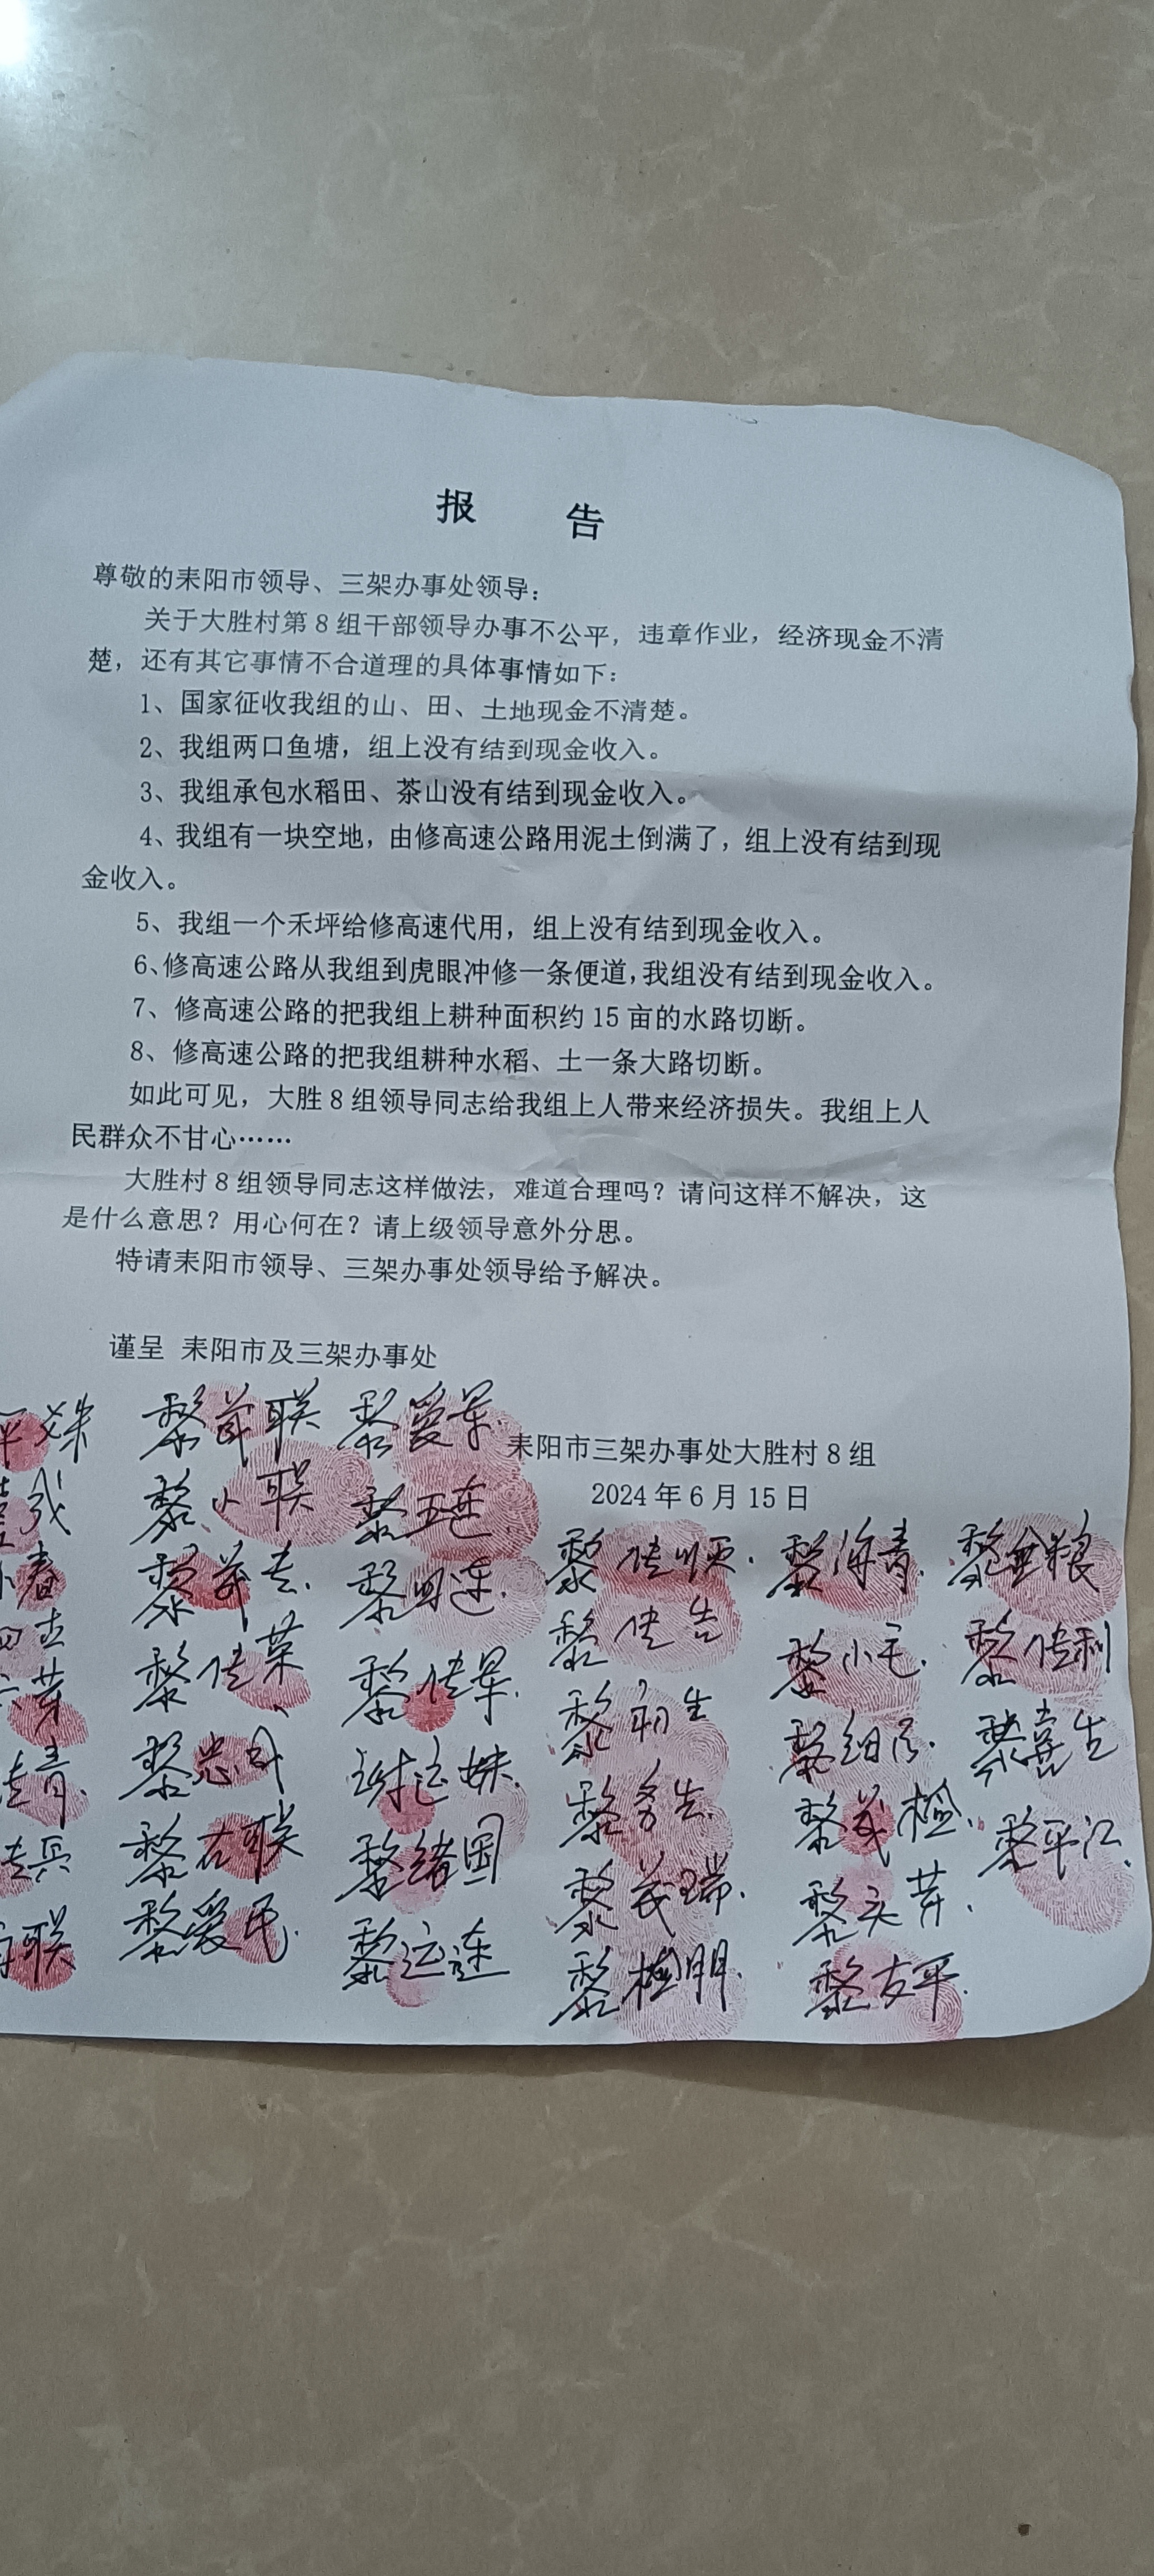 报 告
尊敬的耒阳市领导、三架办事处领导：
关于大胜村第8组干部领导办事不公平，违章作业，经济现金不清
楚，还有其它事情不合道理的具体事情如下：
1、国家征收我组的山、田、土地现金不清楚。
2、我组两口鱼塘，组上没有结到现金收入。
3、我组承包水稻田、茶山没有结到现金收入。
4、我组有一块空地，由修高速公路用泥土倒满了，组上没有结到现
金收入。
5、我组一个禾坪给修高速代用，组上没有结到现金收入。
6、修高速公路从我组到虎眼冲修一条便道，我组没有结到现金收入。
7、修高速公路的把我组上耕种面积约15亩的水路切断。
8、修高速公路的把我组耕种水稻、土一条大路切断。
如此可见，大胜8组领导同志给我组上人带来经济损失。我组上人
民群众不甘心……
大胜村8组领导同志这样做法，难道合理吗？请问这样不解决，这
是什么意思？用心何在？请上级领导意外分思。
特请耒阳市领导、三架办事处领导给予解决。
谨呈 耒阳市及三架办事处
耒阳市三架办事处大胜村8组
2024年6月15日
黎小联
黎爱民
黎五连
黎四连
黎绪国
黎运连
黎海青
黎小毛
黎友平
黎喜生
黎平江